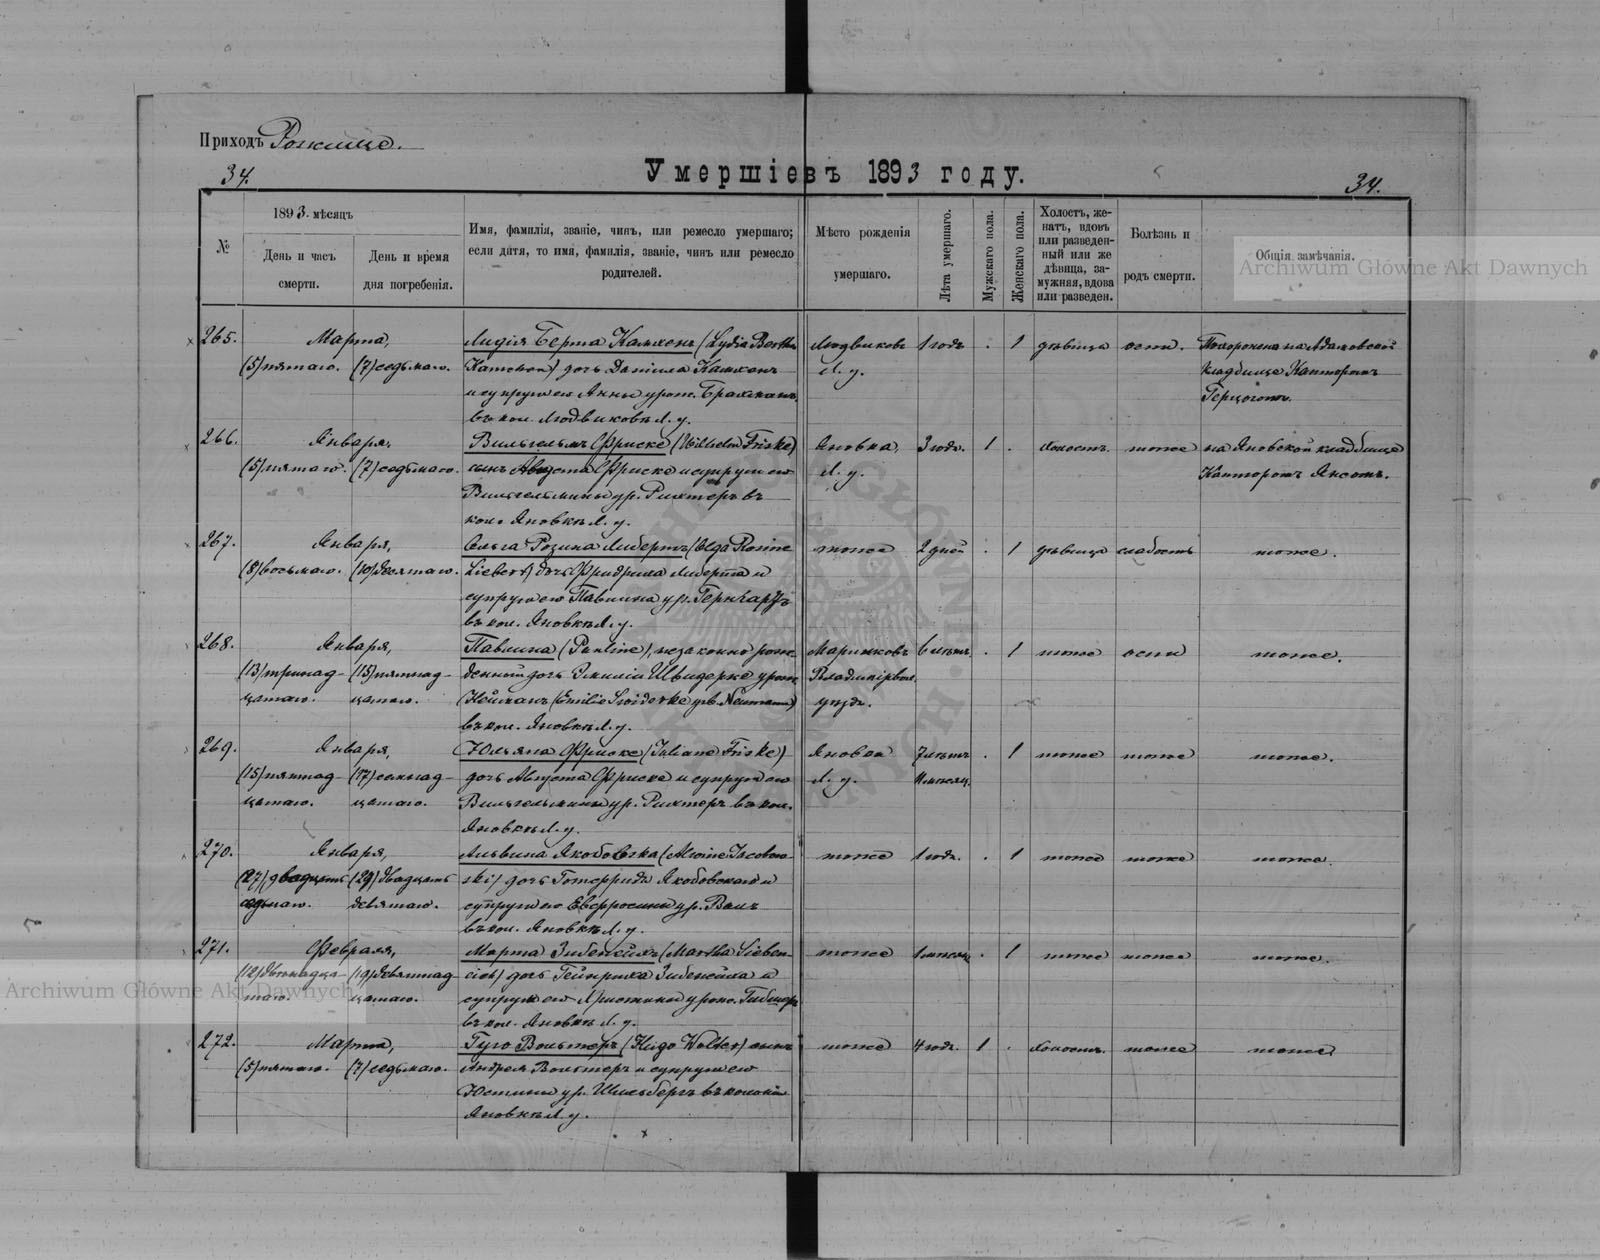 Приходъ Рожище.
Умершіе въ 1893 году.
34.
34.
№
1893. мѣсяцъ
День и часъ смерти.
День и время дня погребенія.
Имя, фамилія, званіе, чинъ, или ремесло умершаго;
если дитя, то имя, фамилія, званіе, чинъ или ремесло
родителей.
Мѣсто рожденія
умершаго.
Лѣта умершаго.
Мужскаго пола.
Женскаго пола.
Холостъ, же-
натъ, вдовъ
или разведен-
ный или же
дѣвица, за-
мужняя, вдова
или разведен.
Болѣзнь и
родъ смерти.
Общія замѣчанія.
Archiwum Główne Akt Dawnych
265. Марта, Лидія Берта Камхенъ (Lydia Bertha Людвиковъ 1 годъ . 1 дѣвица оспа. Похоронена на Адамовской
(5) пятаго. (7) седьмаго. дочь Даніила Камхенъ Л. у. кладбище Канторомъ
и супруги его Анны урож. Герцогомъ.
въ кол. Людвиковкѣ Л. у.
266. Января, Вильгельмъ Фриске (Wilhelm Friske) Яновка, 3 года. 1 . холостъ. тоже на Яновской кладбище
(5) пятаго. (7) седьмаго. сынъ Августа Фриске и супруги его Л. у. Канторомъ
Вильгельмины ур. Рихтеръ въ
кол. Яновкѣ Л. у.
267. Января, Ольга Розина Либертъ (Olga Rosine тоже 2 дней . 1 дѣвица слабость тоже.
(8) восьмаго. (10) десятаго. Liebert) дочь Фридриха Либерта и
супруги его Павлина ур.
въ кол. Яновкѣ Л. у.
268. Января, Павлина (Pauline), незаконно рож- 6 лѣтъ. . 1 тоже оспа тоже.
(13) тринад- (15) пятнад- денной дочь Эмиліи Швидерке урож.
цатаго. цатаго. Нейманъ (Emilie Swiderke geb. Neumann) уѣзд.
въ кол. Яновкѣ Л. у.
269. Января, Юльяна Фриске (Juliane Friske) Яновка 7 лѣтъ . 1 тоже тоже тоже.
(15) пятнад- (17) семнад- дочь Августа Фриске и супруги его Л. у. мѣсяц.
цатаго. цатаго. Вильгельмины ур. Рихтеръ въ кол.
Яновкѣ Л. у.
270. Января, Альвина Якобовска (Alwine Jacobow- тоже 1 годъ. . 1 тоже тоже тоже.
(27) двадцать (29) двадцать ski) дочь Готфрида Якобовскаго и
седьмаго. девятаго. супруги его Евфросины ур.
въ кол. Яновкѣ Л. у.
271. Февраля, Марта Зибенейхъ (Martha Sieben- тоже 1 мѣсяц . 1 тоже тоже тоже.
(12) двѣнадца- (19) девятнад- eich) дочь Гейнриха Зибенейха и
таго. цатаго. супруги его Христины урож.
въ кол. Яновкѣ Л. у.
272. Марта, Гуго Вольтеръ (Hugo Wolter) сынъ тоже 4 года. 1 . холостъ. тоже тоже
(5) пятаго. (7) седьмаго. Андрея Вольтеръ и супруги его
Юстины ур. Шильбергъ въ колоніи
Яновкѣ Л. у.
Archiwum Główne Akt Dawnych